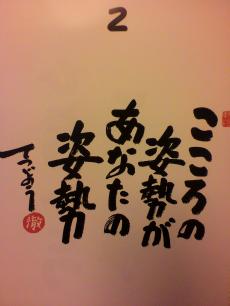 2
こころの
姿勢が
あなたの
姿勢
てつどう
徹